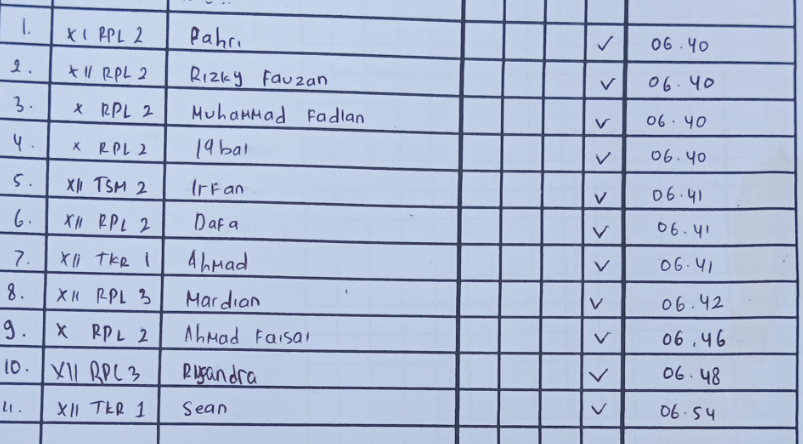 1. XI RPL 2 Pahri ✓ 06.40
2. XII RPL 2 Rizky Fauzan ✓ 06.40
3. X RPL 2 Muhammad Fadlan ✓ 06.40
4. X RPL 2 Iqbal ✓ 06.40
5. XII TSM 2 Irfan ✓ 06.41
6. XII RPL 2 Dafa ✓ 06.41
7. XII TKR 1 Ahmad ✓ 06.41
8. XII RPL 3 Mardian ✓ 06.42
9. X RPL 2 Ahmad Faisal ✓ 06.46
10. XII RPL 3 ✓ 06.48
11. XII TKR 1 Sean ✓ 06.54